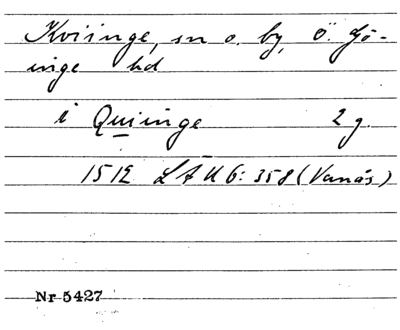 Kviinge, sn o. by, Ö. Gö-
inge hd
i Quiinge 2 g.
1512 LÄU 6: 358 (Vanås)
Nr 5427